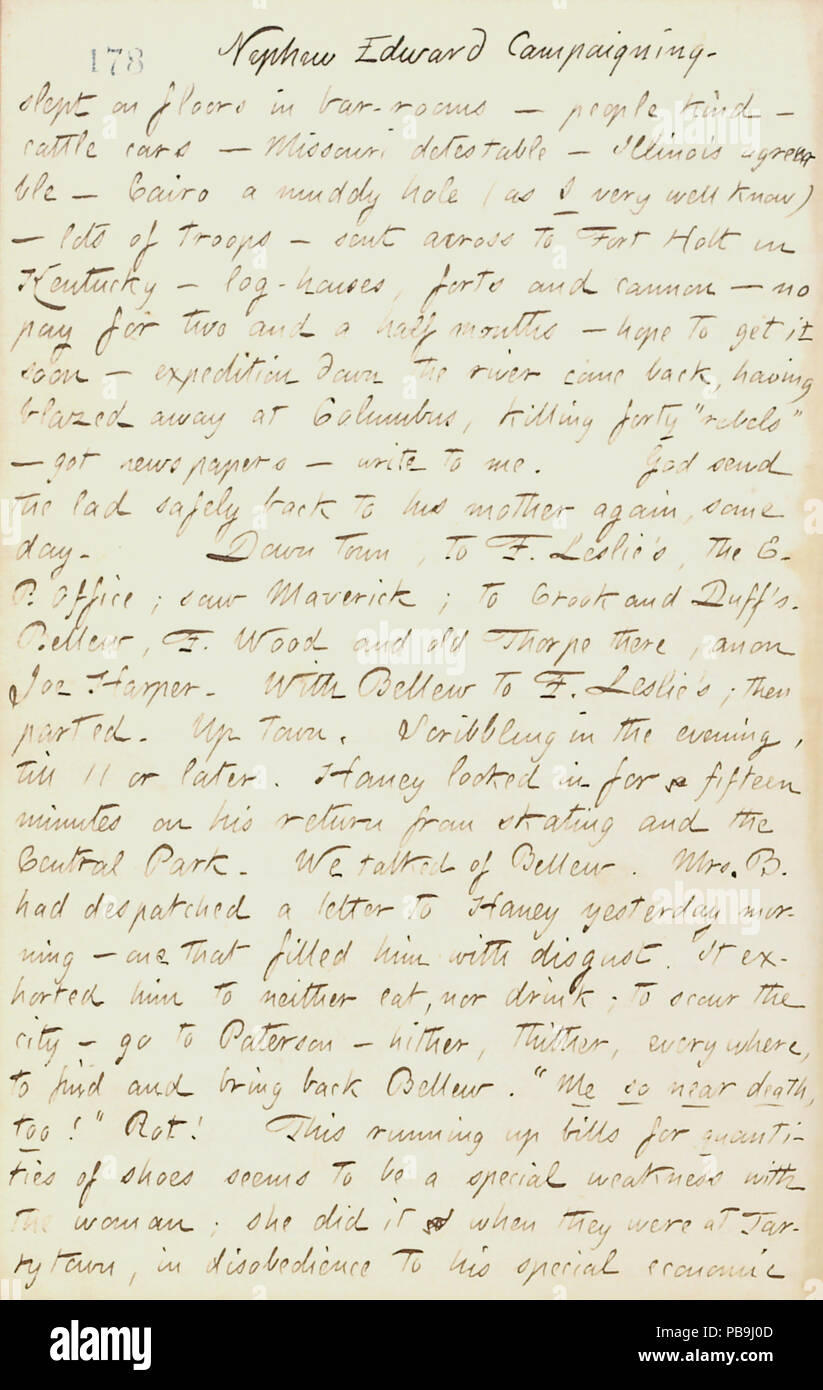 178 Nephew Edward Campaigning.
slept on floors in bar-rooms — people kind —
cattle cars — Missouri detestable — Illinois agreea
ble — Cairo a muddy hole (as I very well know)
— lots of troops — sent across to Fort Holt in
Kentucky — log-houses, forts and cannon — no
pay for two and a half months — hope to get it
soon — expedition down the river came back, having
blazed away at Columbus, killing forty "rebels"
— got newspapers — write to me. God send
the lad safely back to his mother again, some
day. Down town, to F. Leslie's, the E.
P. Office; saw Maverick; to Crook and Duff's.
Bellew, F. Wood and old Thorpe there, anon
Joe Harper. With Bellew to F. Leslie's; then
parted. Up town. Scribbling in the evening,
till 11 or later. Haney looked in for fifteen
minutes on his return from skating and the
Central Park. We talked of Bellew. Mrs. B.
had despatched a letter to Haney yesterday mor-
ning — one that filled him with disgust. It ex-
horted him to neither eat, nor drink; to scour the
city — go to Paterson — hither, thither, everywhere,
to find and bring back Bellew. "Me so near death,
too!" Rot! This running up bills for quanti-
ties of shoes seems to be a special weakness with
the woman; she did it when they were at Tar-
rytown, in disobedience to his special economic
alamy
Image ID: PB9J0D
www.alamy.com